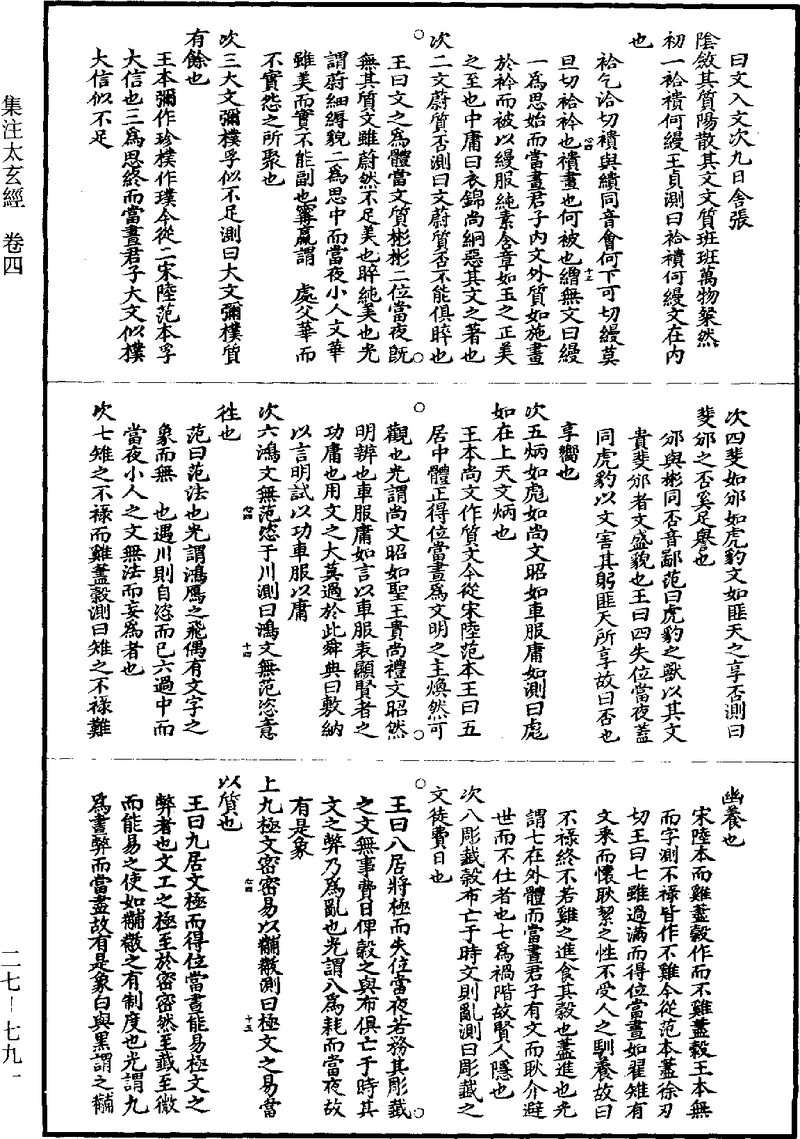 集注太玄經　卷四
曰文入文次九日舍張
陰斂其質陽散其文文質班班萬物粲然
初一袷襀何縵玉貞測曰袷襀何縵文在内
也
袷乞洽切襀與繢同音會何下可切縵莫
旦切袷衿也襀畫也何被也繒無文曰縵
一爲思始而當晝君子内文外質如施畫
於衿而被以縵服純素含章如玉之正美
之至也中庸曰衣錦尚絅惡其文之著也
次二文蔚質否測曰文蔚質否不能俱睟也
王曰文之爲體當文質彬彬二位當夜旣
無其質文雖蔚然不足美也睟純美也光
謂蔚細縟貌二爲思中而當夜小人文華
雖美而實不能副也寗嬴謂　處父華而
不實怨之所聚也
次三大文彌樸孚似不足測曰大文彌樸質
有餘也
王本彌作珍樸作璞今從二宋陸范本孚
大信也三爲思終而當晝君子大文似樸
大信似不足
次四斐如邠如虎豹文如匪天之享否測曰
斐邠之否奚足譽也
邠與彬同否音鄙范曰虎豹之獸以其文
貴斐邠者文盛貌也王曰四失位當夜蓋
同虎豹以文害其躬匪天所享故曰否也
享嚮也
次五炳如彪如尚文昭如車服庸如測曰彪
如在上天文炳也
王本尚文作質文今從宋陸范本王曰五
居中體正得位當晝爲文明之主煥然可
觀也光謂尚文昭如聖王貴尚禮文昭然
明辨也車服庸如言以車服表顯賢者之
功庸也用文之大莫過於此舜典曰敷納
以言明試以功車服以庸
次六鴻文無范恣于川測曰鴻文無范恣意
徃也
范曰范法也光謂鴻鴈之飛偶有文字之
象而無　也遇川則自恣而已六過中而
當夜小人之文無法而妄爲者也
次七雉之不祿而雞藎穀測曰雉之不祿難
幽養也
宋陸本而雞藎穀作而不雞藎穀王本無
而字測不祿皆作不雞今從范本藎徐刃
切王曰七雖過滿而得位當晝如翟雉有
文釆而懷耿絜之性不受人之馴養故曰
不祿終不若雞之進食其穀也藎進也光
謂七在外體而當晝君子有文而耿介避
世而不仕者也七爲禍階故賢人隱也
次八彫韯穀布亡于時文則亂測曰彫韯之
文徒費日也
王曰八居將極而失位當夜若務其彫韯
之文無事費日俾穀之與布俱亡于時其
文之弊乃爲亂也光謂八爲耗而當夜故
有是象
上九極文密密易以黼黻測曰極文之易當
以質也
王曰九居文極而得位當晝能易極文之
弊者也文工之極至於密密然至韯至微
而能易之使如黼黻之有制度也光謂九
爲晝弊而當盡故有是象白與黑謂之黼
二七－七九一